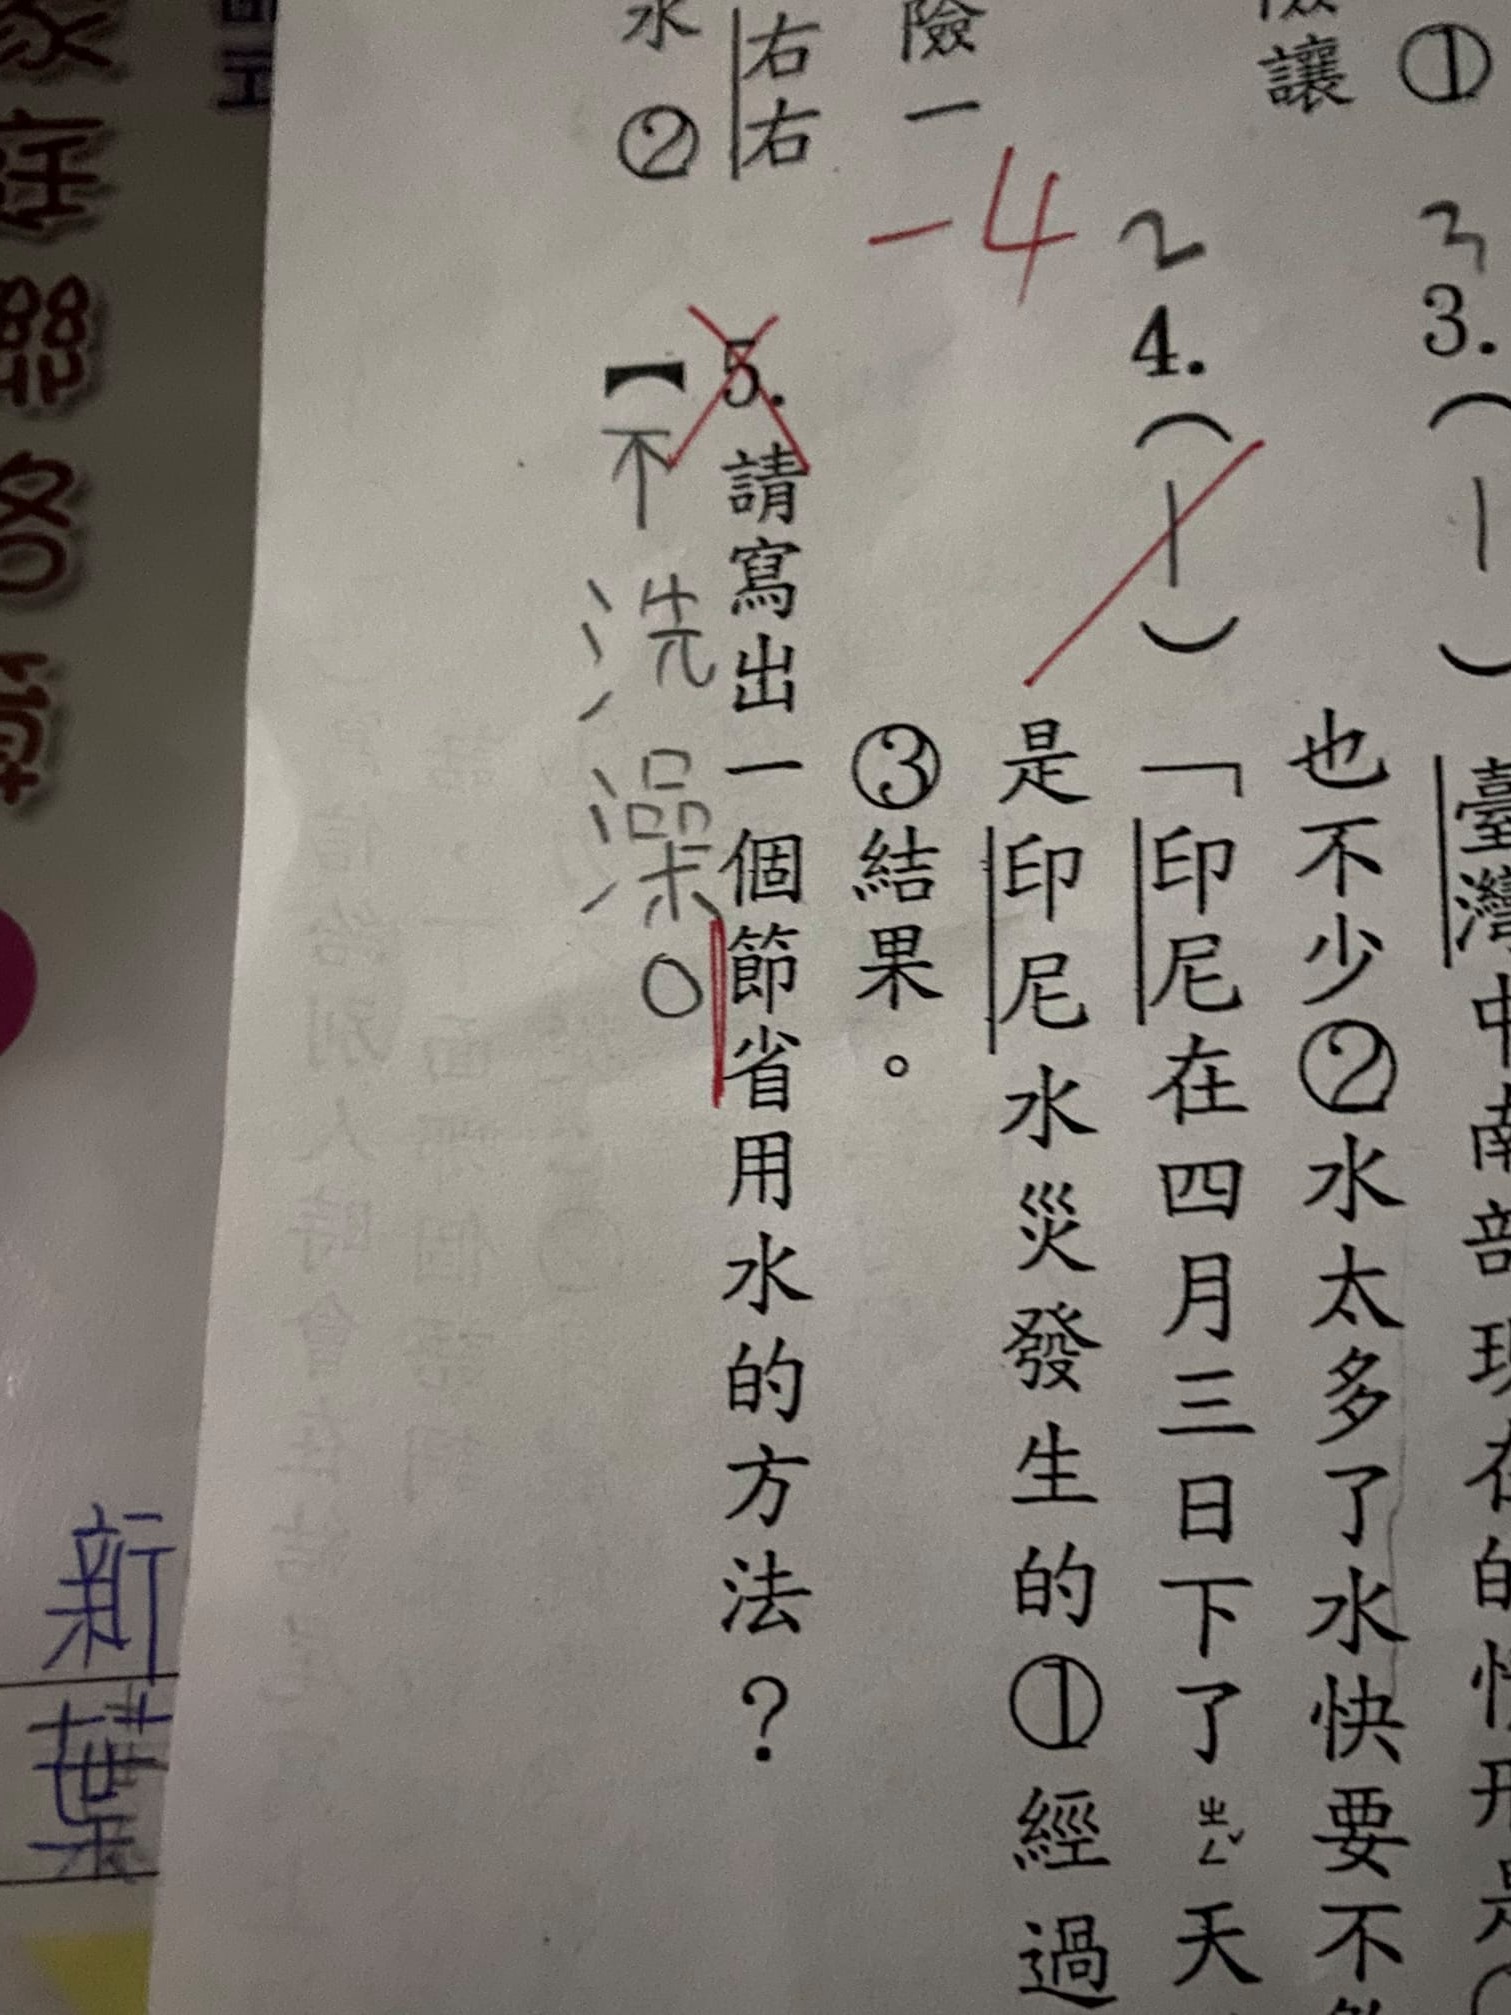 ①
讓
3
3.(1)
臺灣中南部現在的情形是
也不少②水太多了水快要不
2
4.(1)「印尼在四月三日下了ㄓㄥˇ天
是印尼水災發生的①經過
③結果。
險一
-4
右右
5.請寫出一個節省用水的方法？
水②
【不洗澡。
家庭聯絡簿
新
葉